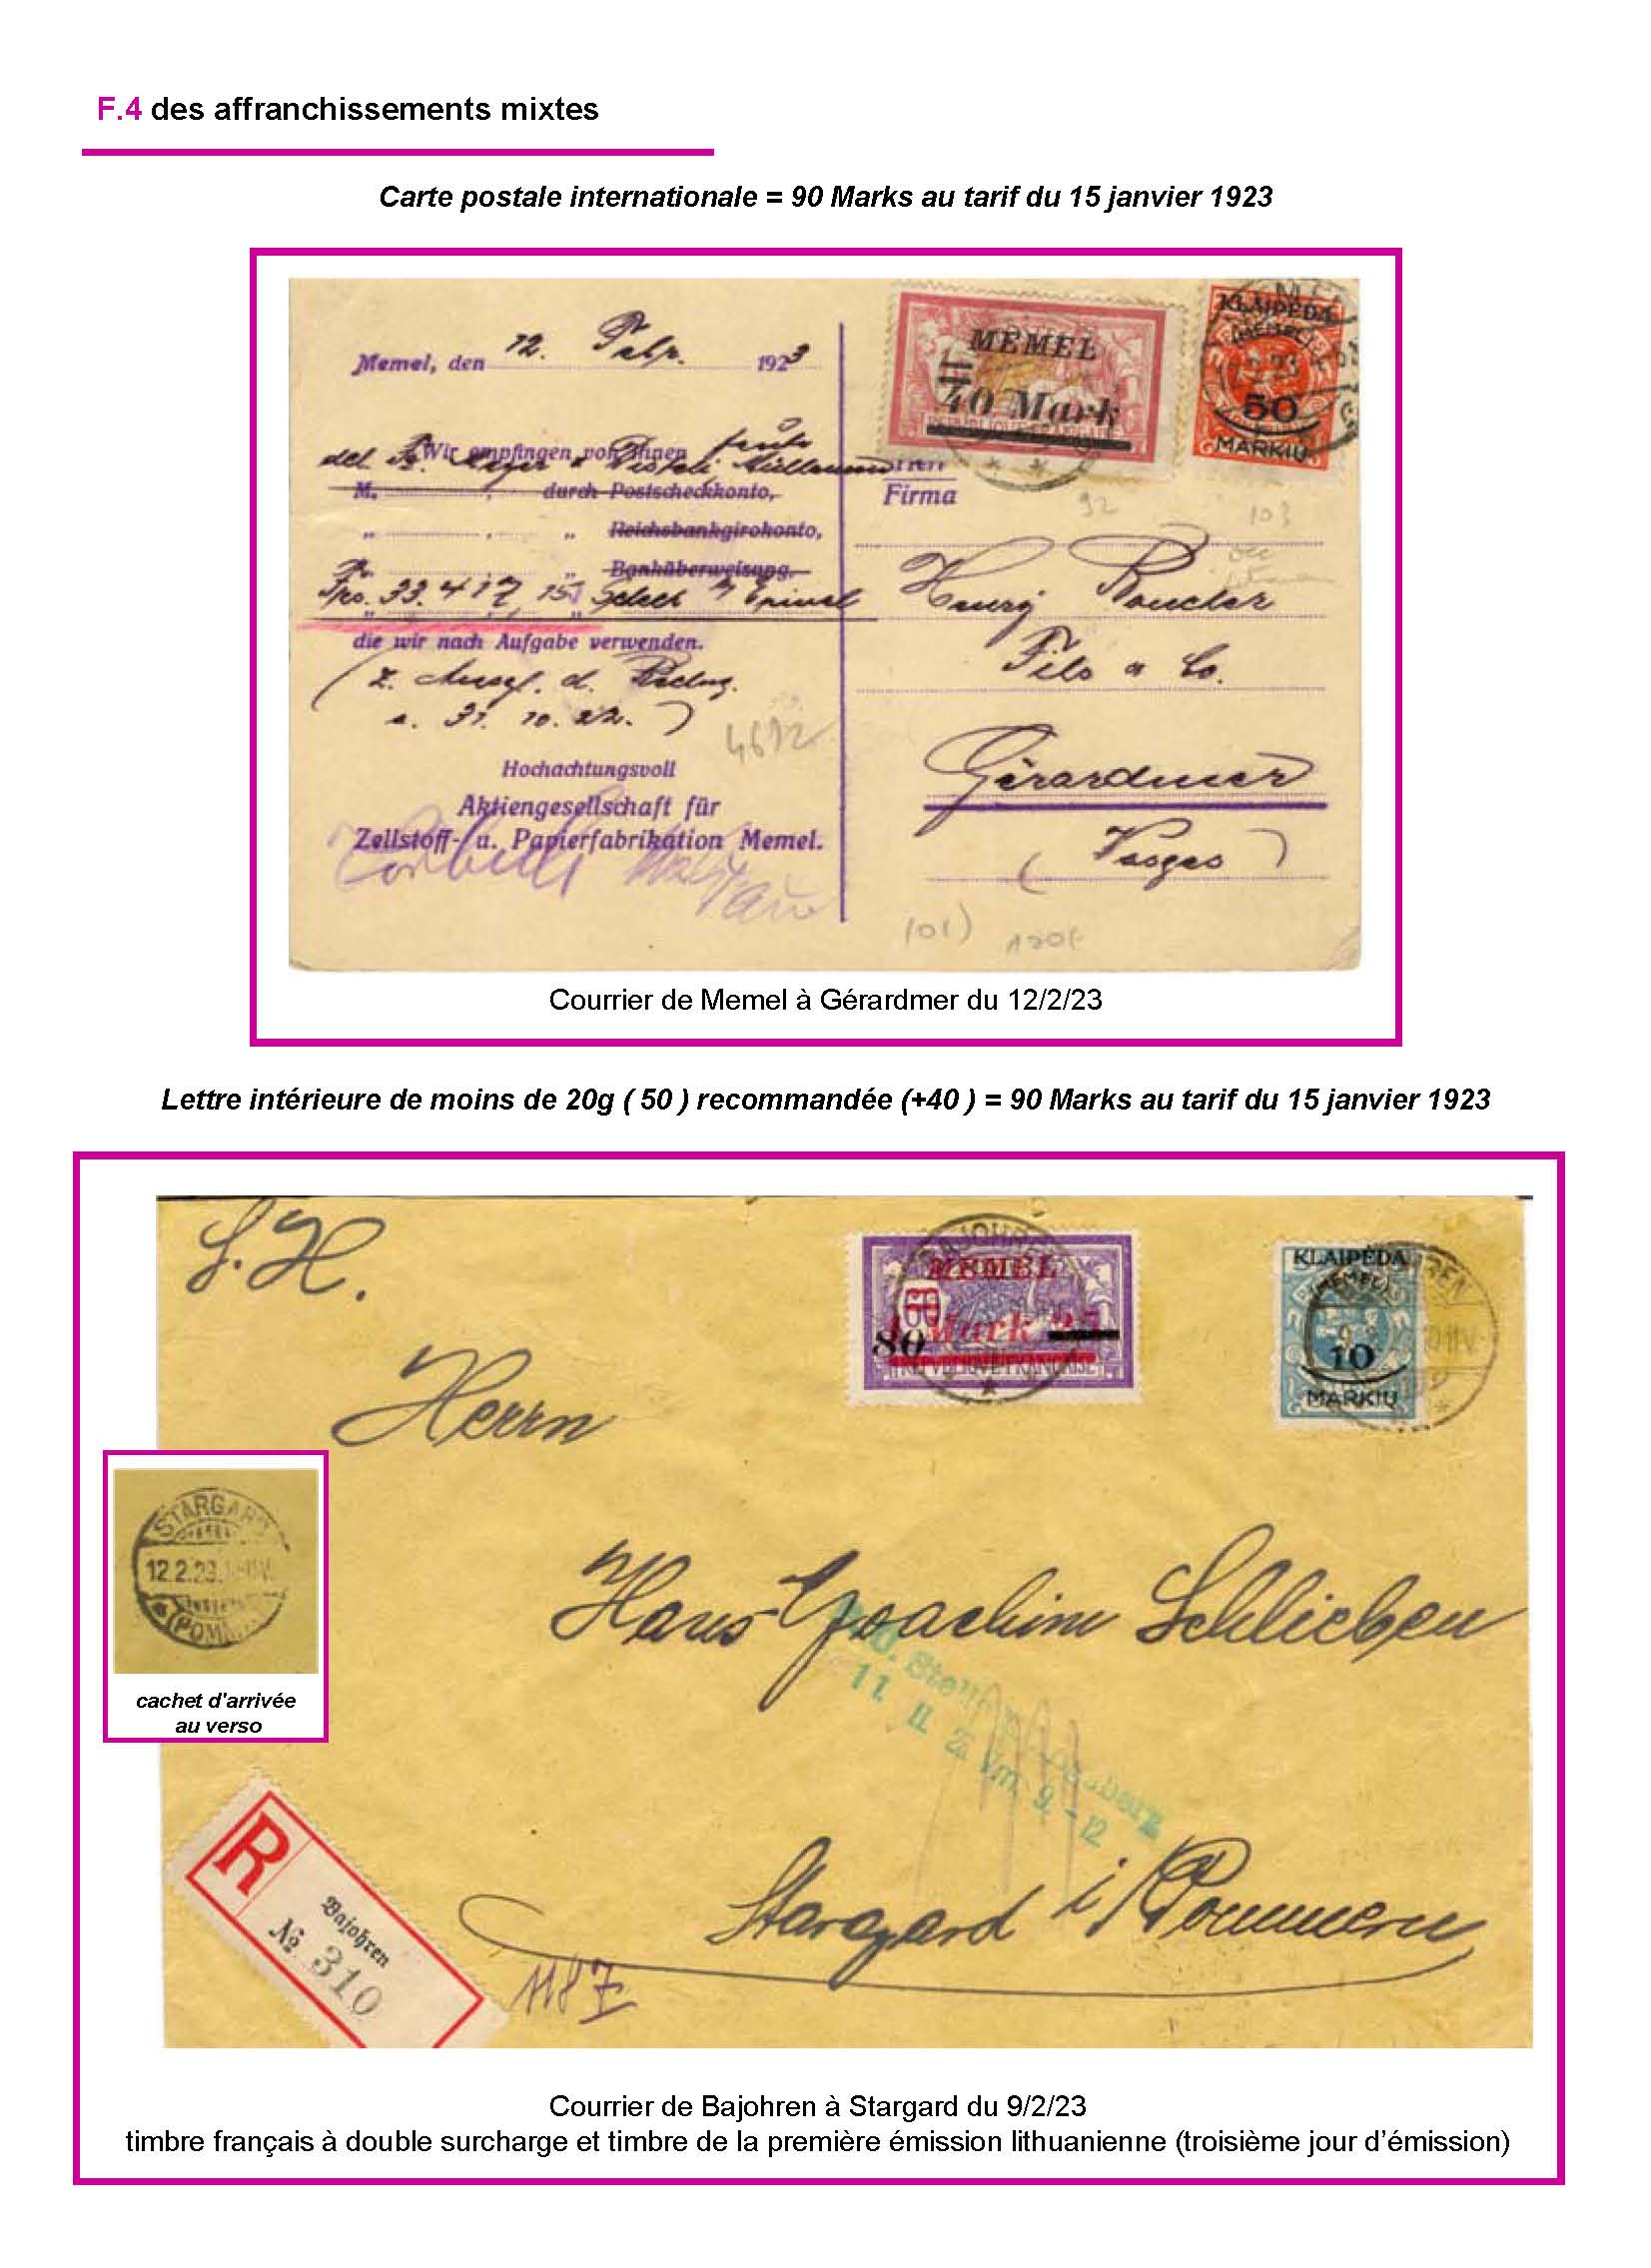 F.4 des affranchissements mixtes
Carte postale internationale = 90 Marks au tarif du 15 janvier 1923
Memel, den 12. Febr. 1923
Wir empfingen von Ihnen
M. durch Postscheckkonto,
" " Reichsbankgirokonto,
" Banküberweisung,
33.417,15
die wir nach Aufgabe verwenden.
31. 10. 22. )
4612
Hochachtungsvoll
Aktiengesellschaft für
Zellstoff- u. Papierfabrikation Memel.
MEMEL
40 Mark
KLAIPEDA
(MEMEL)
50
MARKIŲ
Firma
92
103
Henry Boucher
Fils & Co.
Gérardmer
(Vosges)
101)
Courrier de Memel à Gérardmer du 12/2/23
Lettre intérieure de moins de 20g ( 50 ) recommandée (+40 ) = 90 Marks au tarif du 15 janvier 1923
S. H.
BAJOHREN
MEMEL
60
80
Mark
REPVBLIQVE FRANÇAISE
KLAIPĖDA
(MEMEL)
10
MARKIŲ
Herrn
Hans-Joachim Schlieben
11. II. 23 Vm. 9-12
Stargard i/Pommern
STARGARD
12.2.23
(POMM
cachet d'arrivée
au verso
R
Bajohren
№ 310
1187
Courrier de Bajohren à Stargard du 9/2/23
timbre français à double surcharge et timbre de la première émission lithuanienne (troisième jour d'émission)